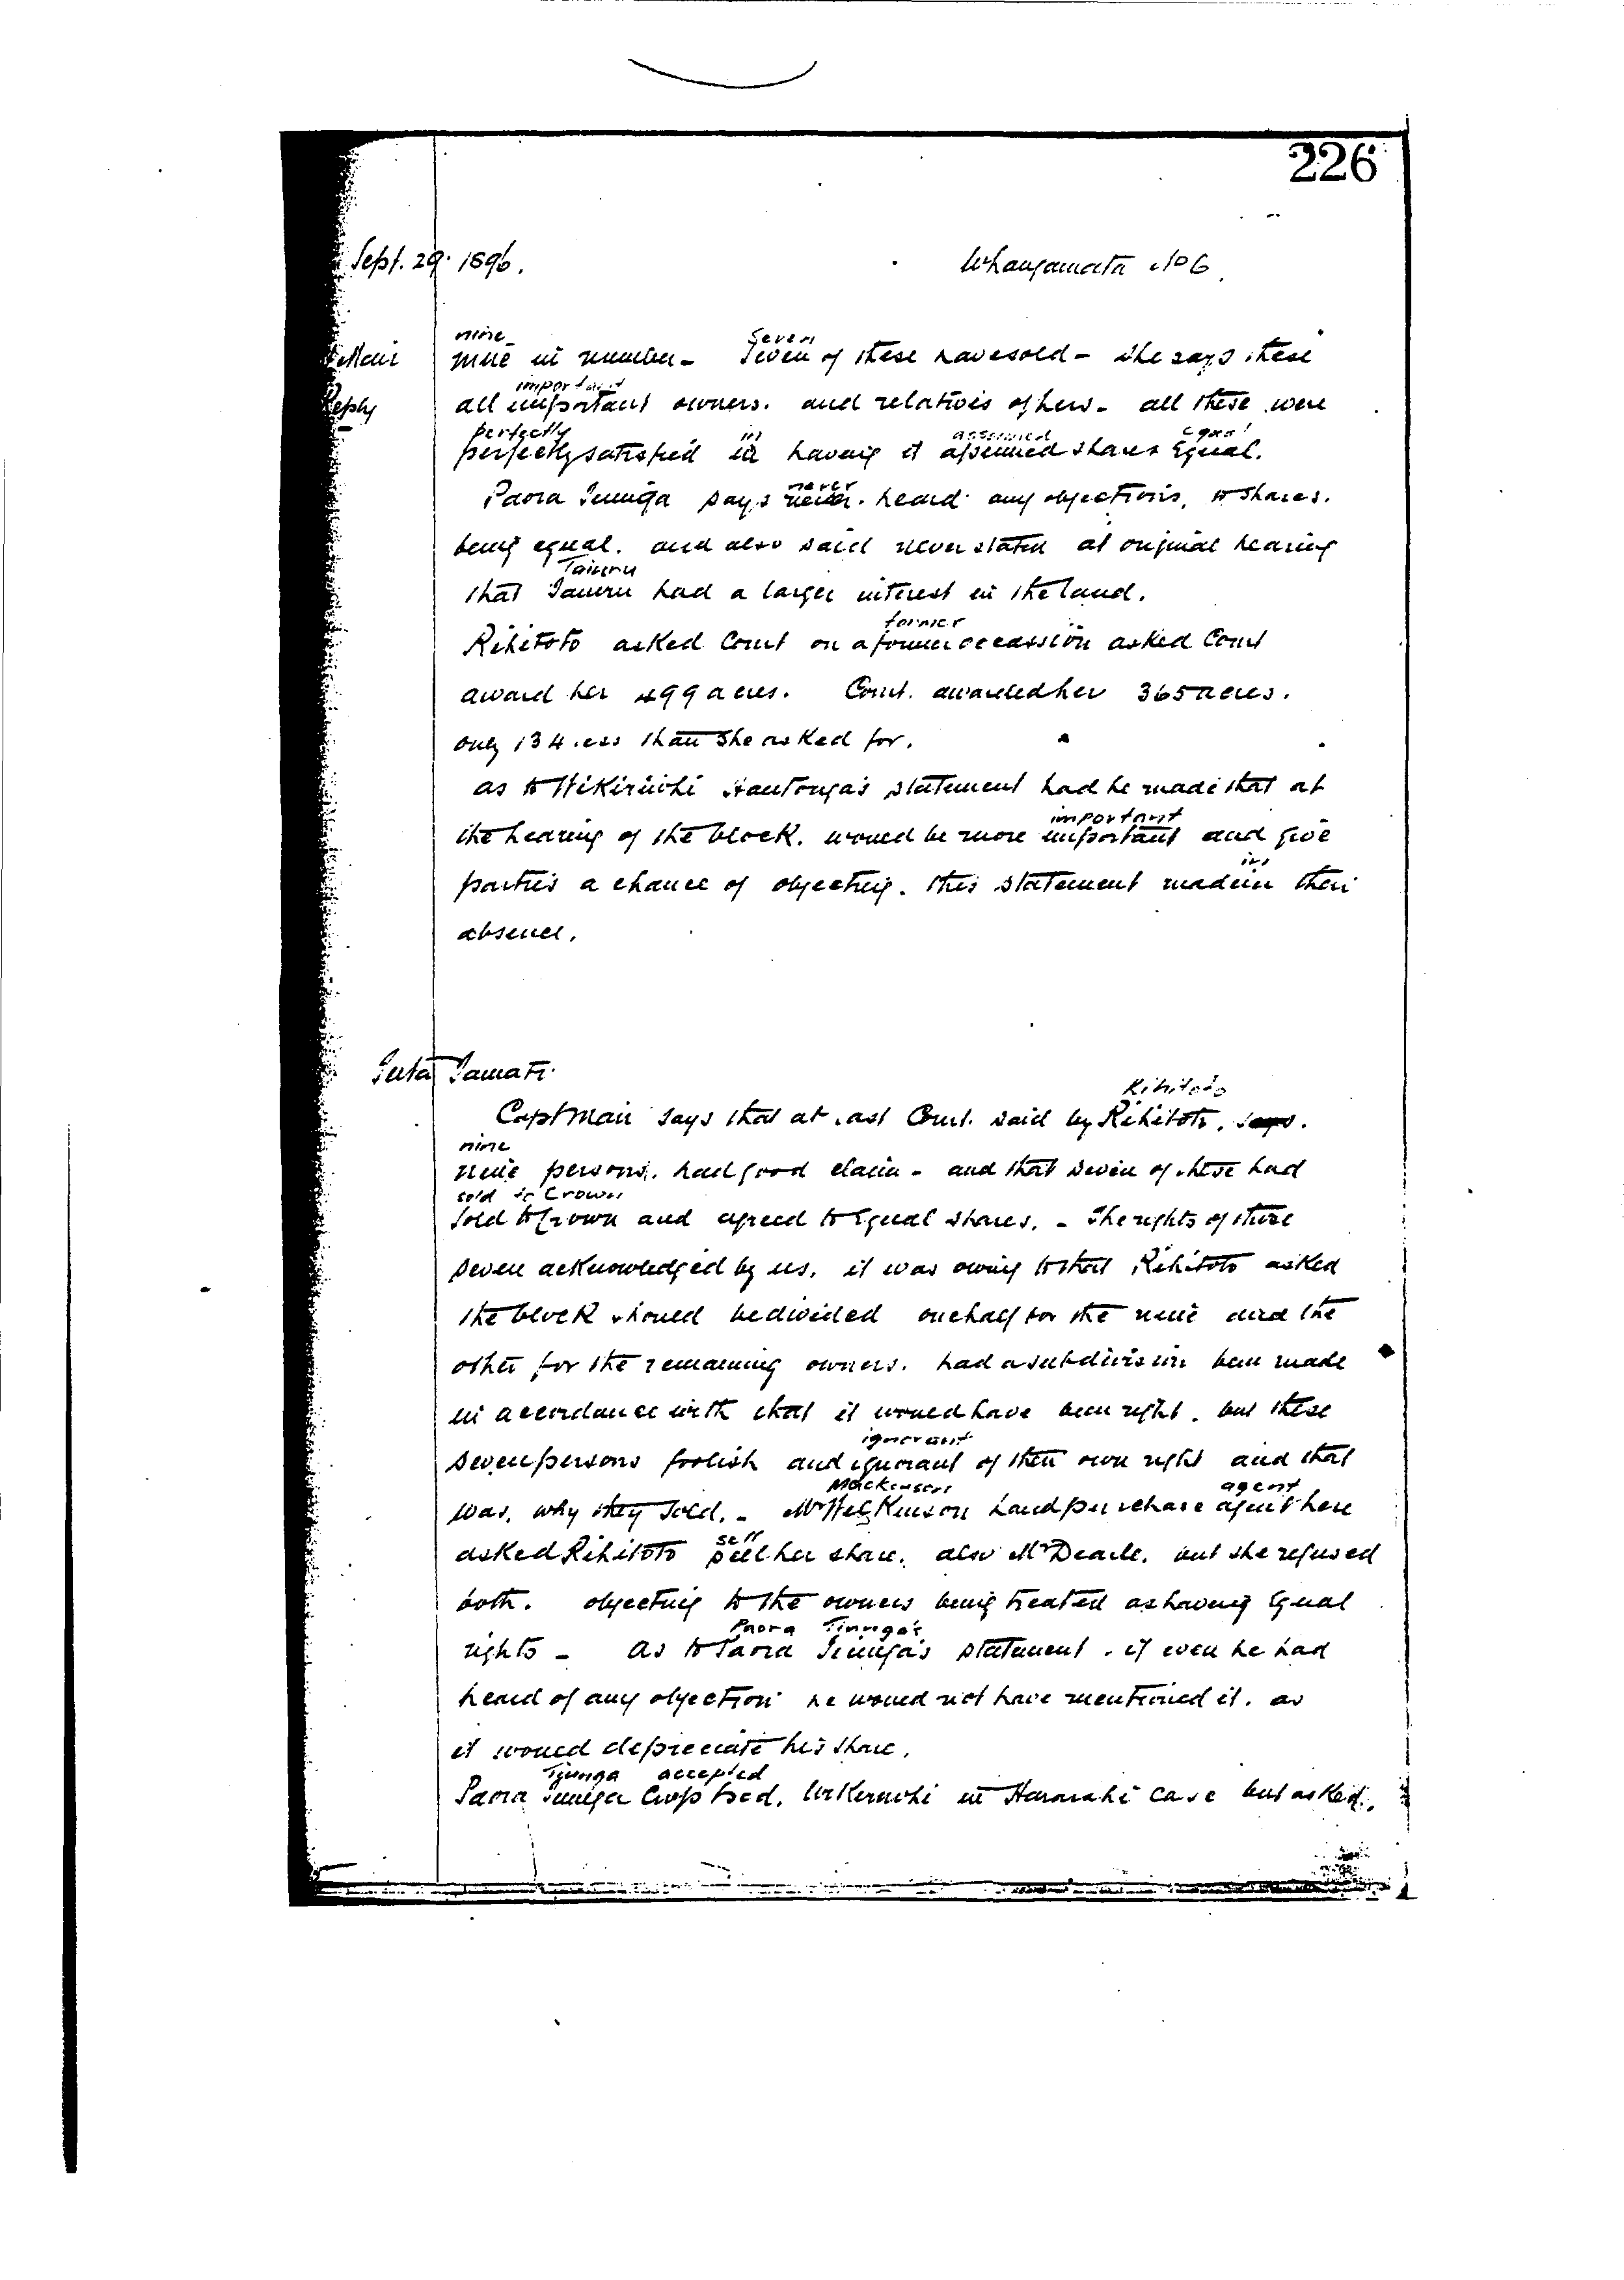 226
Sept. 29. 1896. Whangamata No 6
Mair nine nine in number - Seven Seven of these have sold - she says these
Reply all important important owners. and relatives of hers - all these were
perfectly perfectly satisfied in in having it assumed assumed shares equal Equal.
Paora Tiunga says never never heard any objections, to shares.
being equal. and also said never stated at original hearing
that Taiuru Tauru had a larger interest in the land.
Rihitoto asked Court on a former former occassion asked Court
award her 499 acres. Court. awarded her 365 acres.
only 134 less than she asked for.
as to Wikiriwhi Hautonga's statement had he made that at
the hearing of the block. would be more important important and give
parties a chance of objecting. this statement made in in their
absence.
Tuta Tamati
Capt Mair says that at last Court. said by Rihitoto Rihitoto. says.
nine nine persons. had good claim - and that seven of these had
sold to Crown sold to Crown and agreed to Equal shares. - The rights of these
seven acknowledged by us. it was owing to that Rihitoto asked
the block should be divided one half for the nine and the
other for the remaining owners. had a subdivision been made
in accordance with that it would have been right. but these
seven persons foolish and ignorant ignorant of their own right and that
was. why they sold. - Mackenson Mr McKinson Land purchase agent agent here
asked Rihitoto sell sell her share. also Mr Dearle. but she refused
both. objecting to the owners being treated as having Equal
rights - As to Paora Tiunga's Paora Tiunga's statement. if even he had
heard of any objection he would not have mentioned it. as
it would depreciate his share.
Paora Tiunga accepted in case but asked.